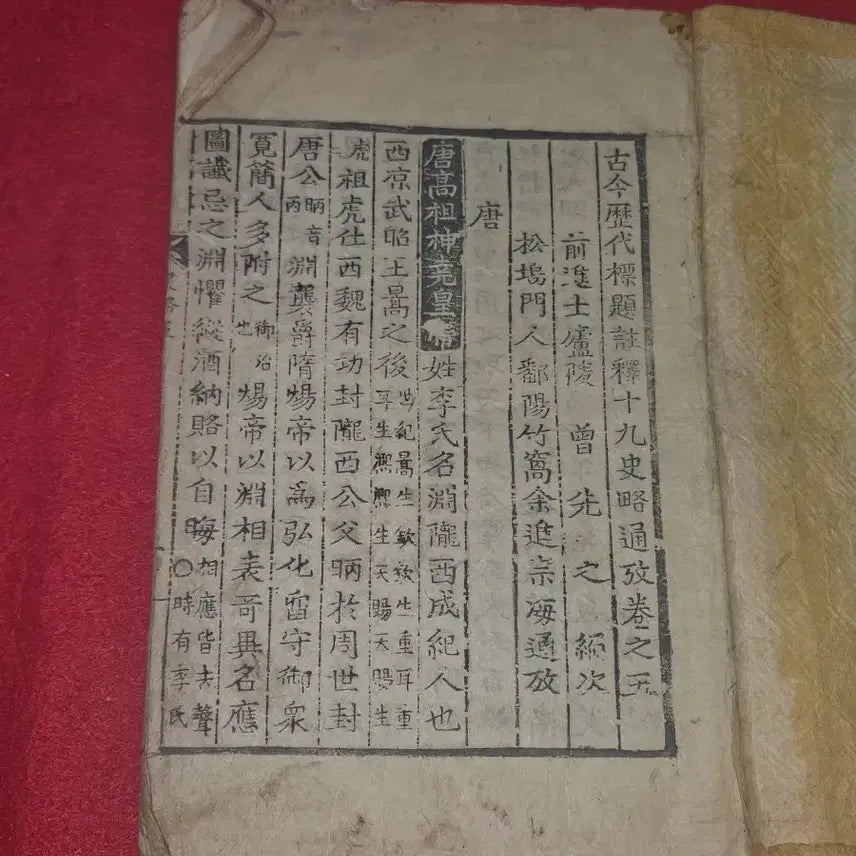 古今歴代標題註釋十九史略通攷卷之五
前進士廬陵 曾 先 之 編次
松塢門人鄱陽竹窩余進宗海通攷
唐
唐高祖神堯皇帝姓李氏名淵隴西成紀人也
西凉武昭王暠之後世紀暠生歆歆生重耳重耳生熙熙生天賜天賜生
虎祖虎仕西魏有功封隴西公父昞於周世封
唐公昞音丙淵襲爵隋煬帝以爲弘化留守御衆
寬簡人多附之御治也煬帝以淵相表奇異名應
圖讖忌之淵懼縱酒納賂以自晦相應皆去聲○時有李氏